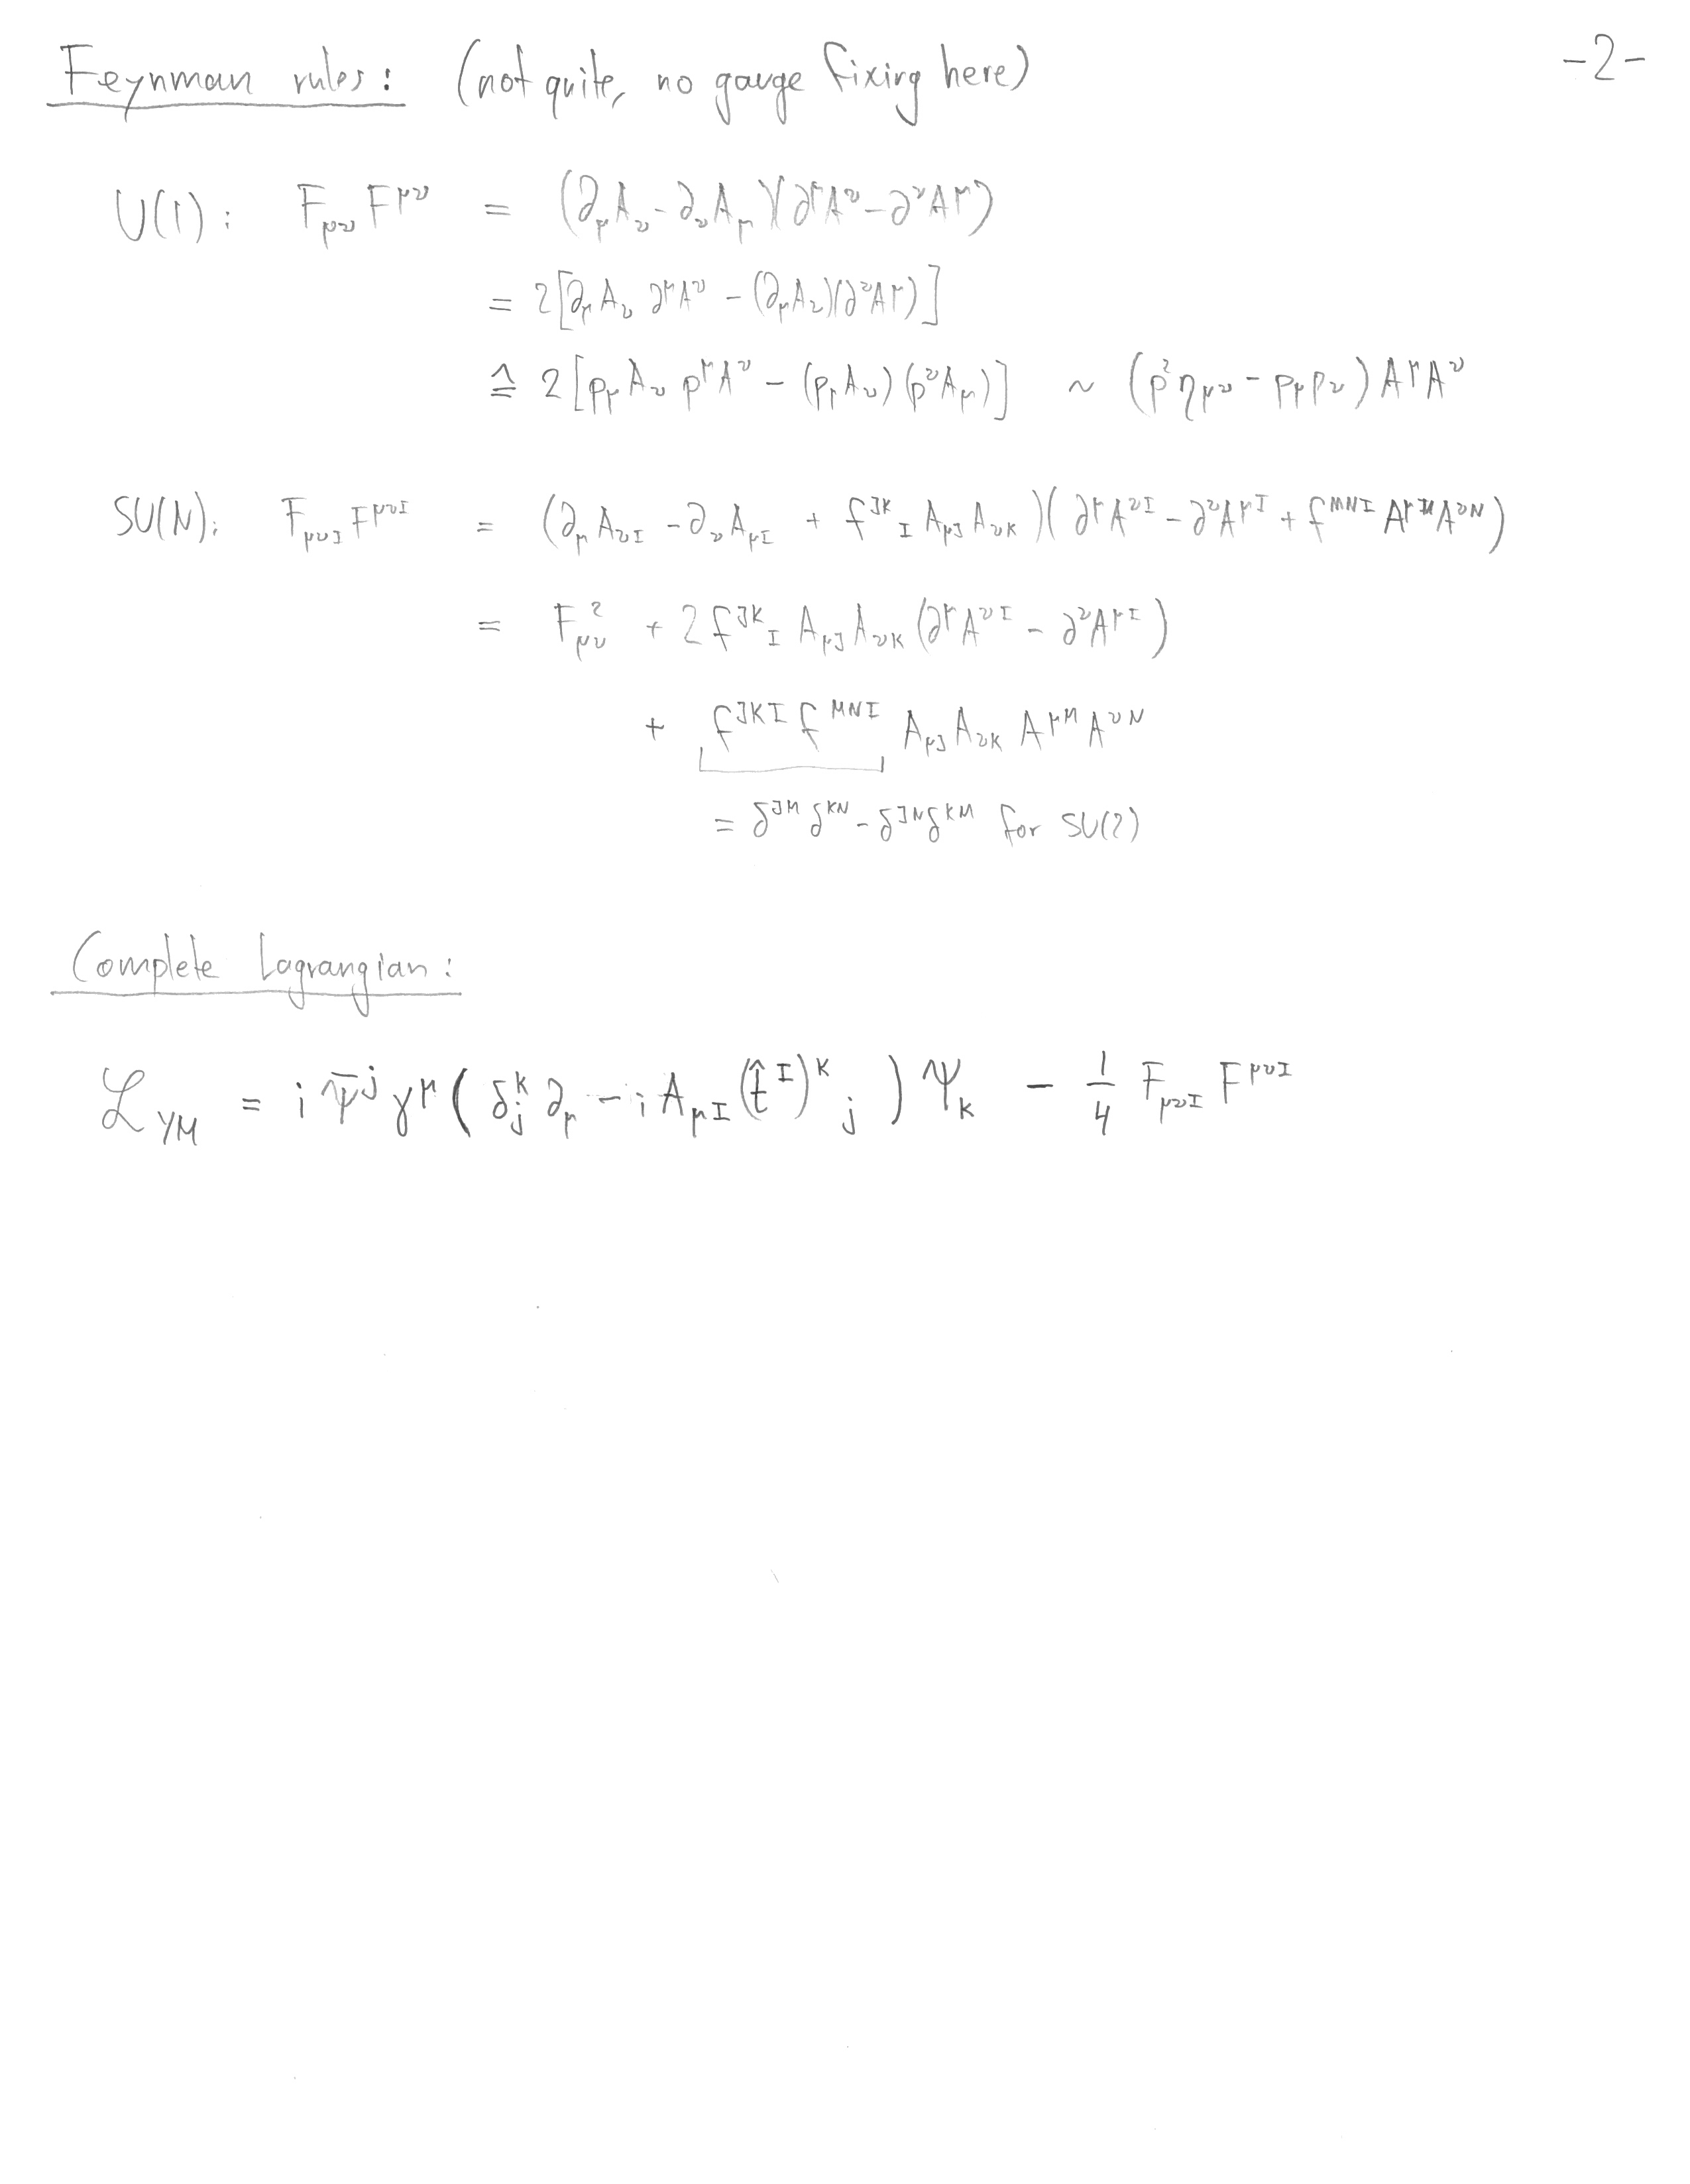 Feynman rules: (not quite, no gauge fixing here) -2-
U(1): F_{μν} F^{μν} = (∂_μ A_ν - ∂_ν A_μ)(∂^μ A^ν - ∂^ν A^μ)
= 2[∂_μ A_ν ∂^μ A^ν - (∂_μ A_ν)(∂^ν A^μ)]
≙ 2[p_μ A_ν p^μ A^ν - (p_μ A_ν)(p^ν A_μ)] ~ (p² η_{μν} - p_μ p_ν) A^μ A^ν
SU(N): F_{μνI} F^{μνI} = (∂_μ A_{νI} - ∂_ν A_{μI} + f^{JK}_I A_{μJ} A_{νK})(∂^μ A^{νI} - ∂^ν A^{μI} + f^{MNI} A^{μM} A^{νN})
= F_{μν}^2 + 2 f^{JK}_I A_{μJ} A_{νK} (∂^μ A^{νI} - ∂^ν A^{μI})
+ f^{JKI} f^{MNI} A_{μJ} A_{νK} A^{μM} A^{νN}
= δ^{JM} δ^{KN} - δ^{JN} δ^{KM} for SU(2)
Complete Lagrangian:
ℒ_{YM} = i ψ̄^j γ^μ (δ^k_j ∂_μ - i A_{μI} (t̂^I)^k_j) ψ_k - 1/4 F_{μνI} F^{μνI}